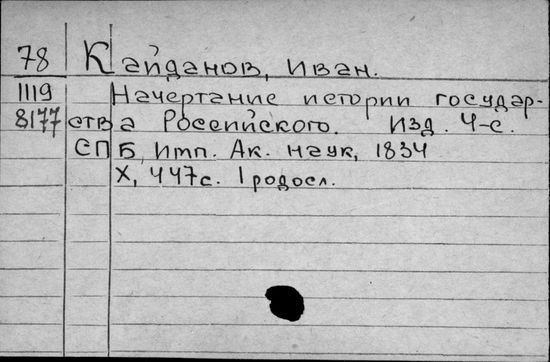 78 Кайданов, Иван.
1119 Начертание истории государ-
8177 ства Российского. Изд. 4-е.
СПБ, Имп. Ак. наук, 1834
X, 447с. 1 родосл.